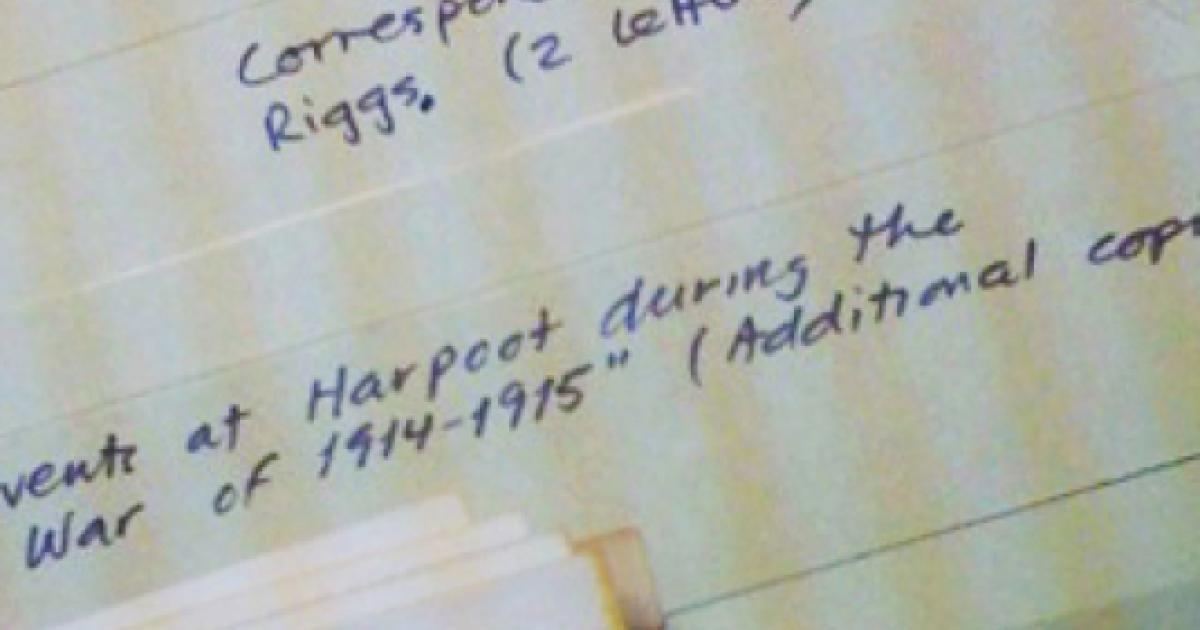 Corresp
Riggs. (2 lett
vents at Harpoot during the
War of 1914-1915" (Additional cop